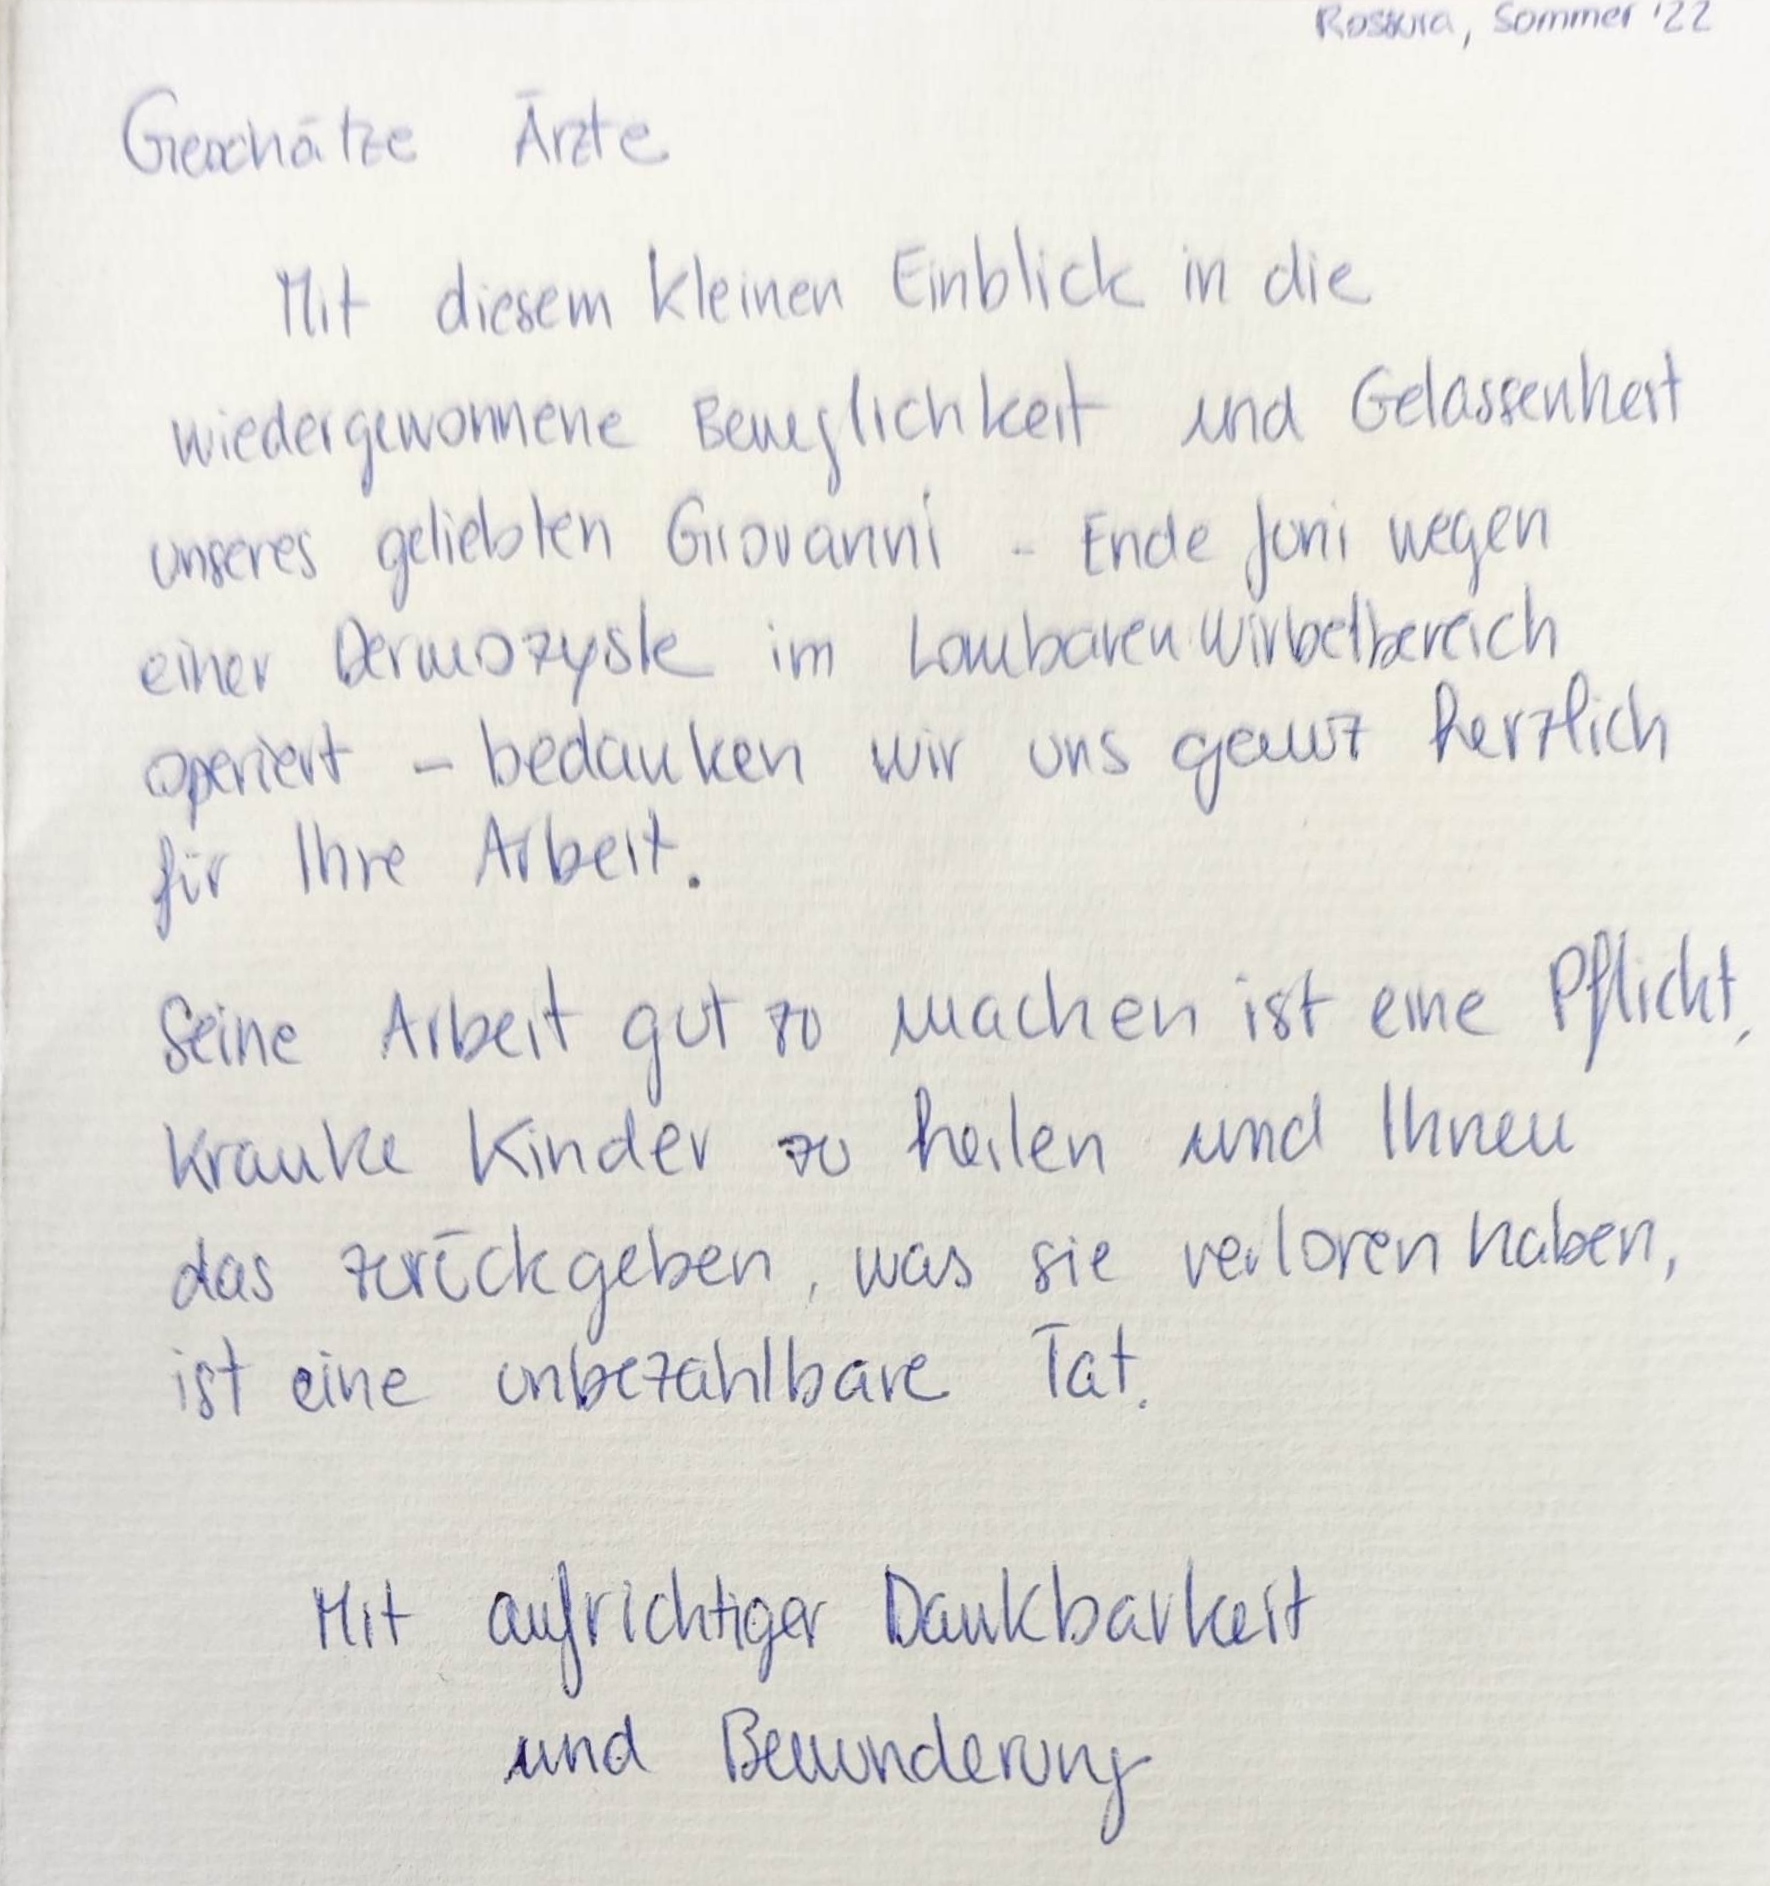 Rossura, Sommer '22
Geschätze Ärzte
Mit diesem kleinen Einblick in die
wiedergewonnene Beweglichkeit und Gelassenheit
unseres geliebten Giovanni - Ende Juni wegen
einer Dermozyste im Lombaren Wirbelbereich
operiert - bedanken wir uns ganz herzlich
für Ihre Arbeit.
Seine Arbeit gut zu machen ist eine Pflicht,
kranke Kinder zu heilen und Ihnen
das zurückgeben, was sie verloren haben,
ist eine unbezahlbare Tat.
Mit aufrichtiger Dankbarkeit
und Bewunderung